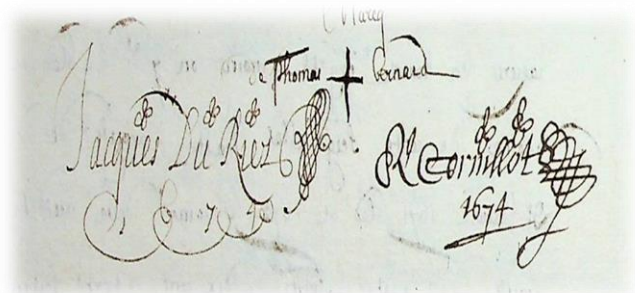 Marcq
de Thomas Bernard
Jacques Du Riez
Rt Cornillot
1674
1674